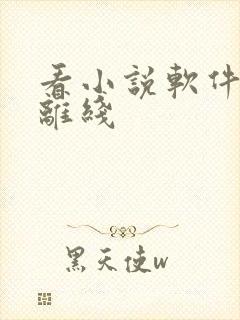 看小說軟件
離綫
黑天使w